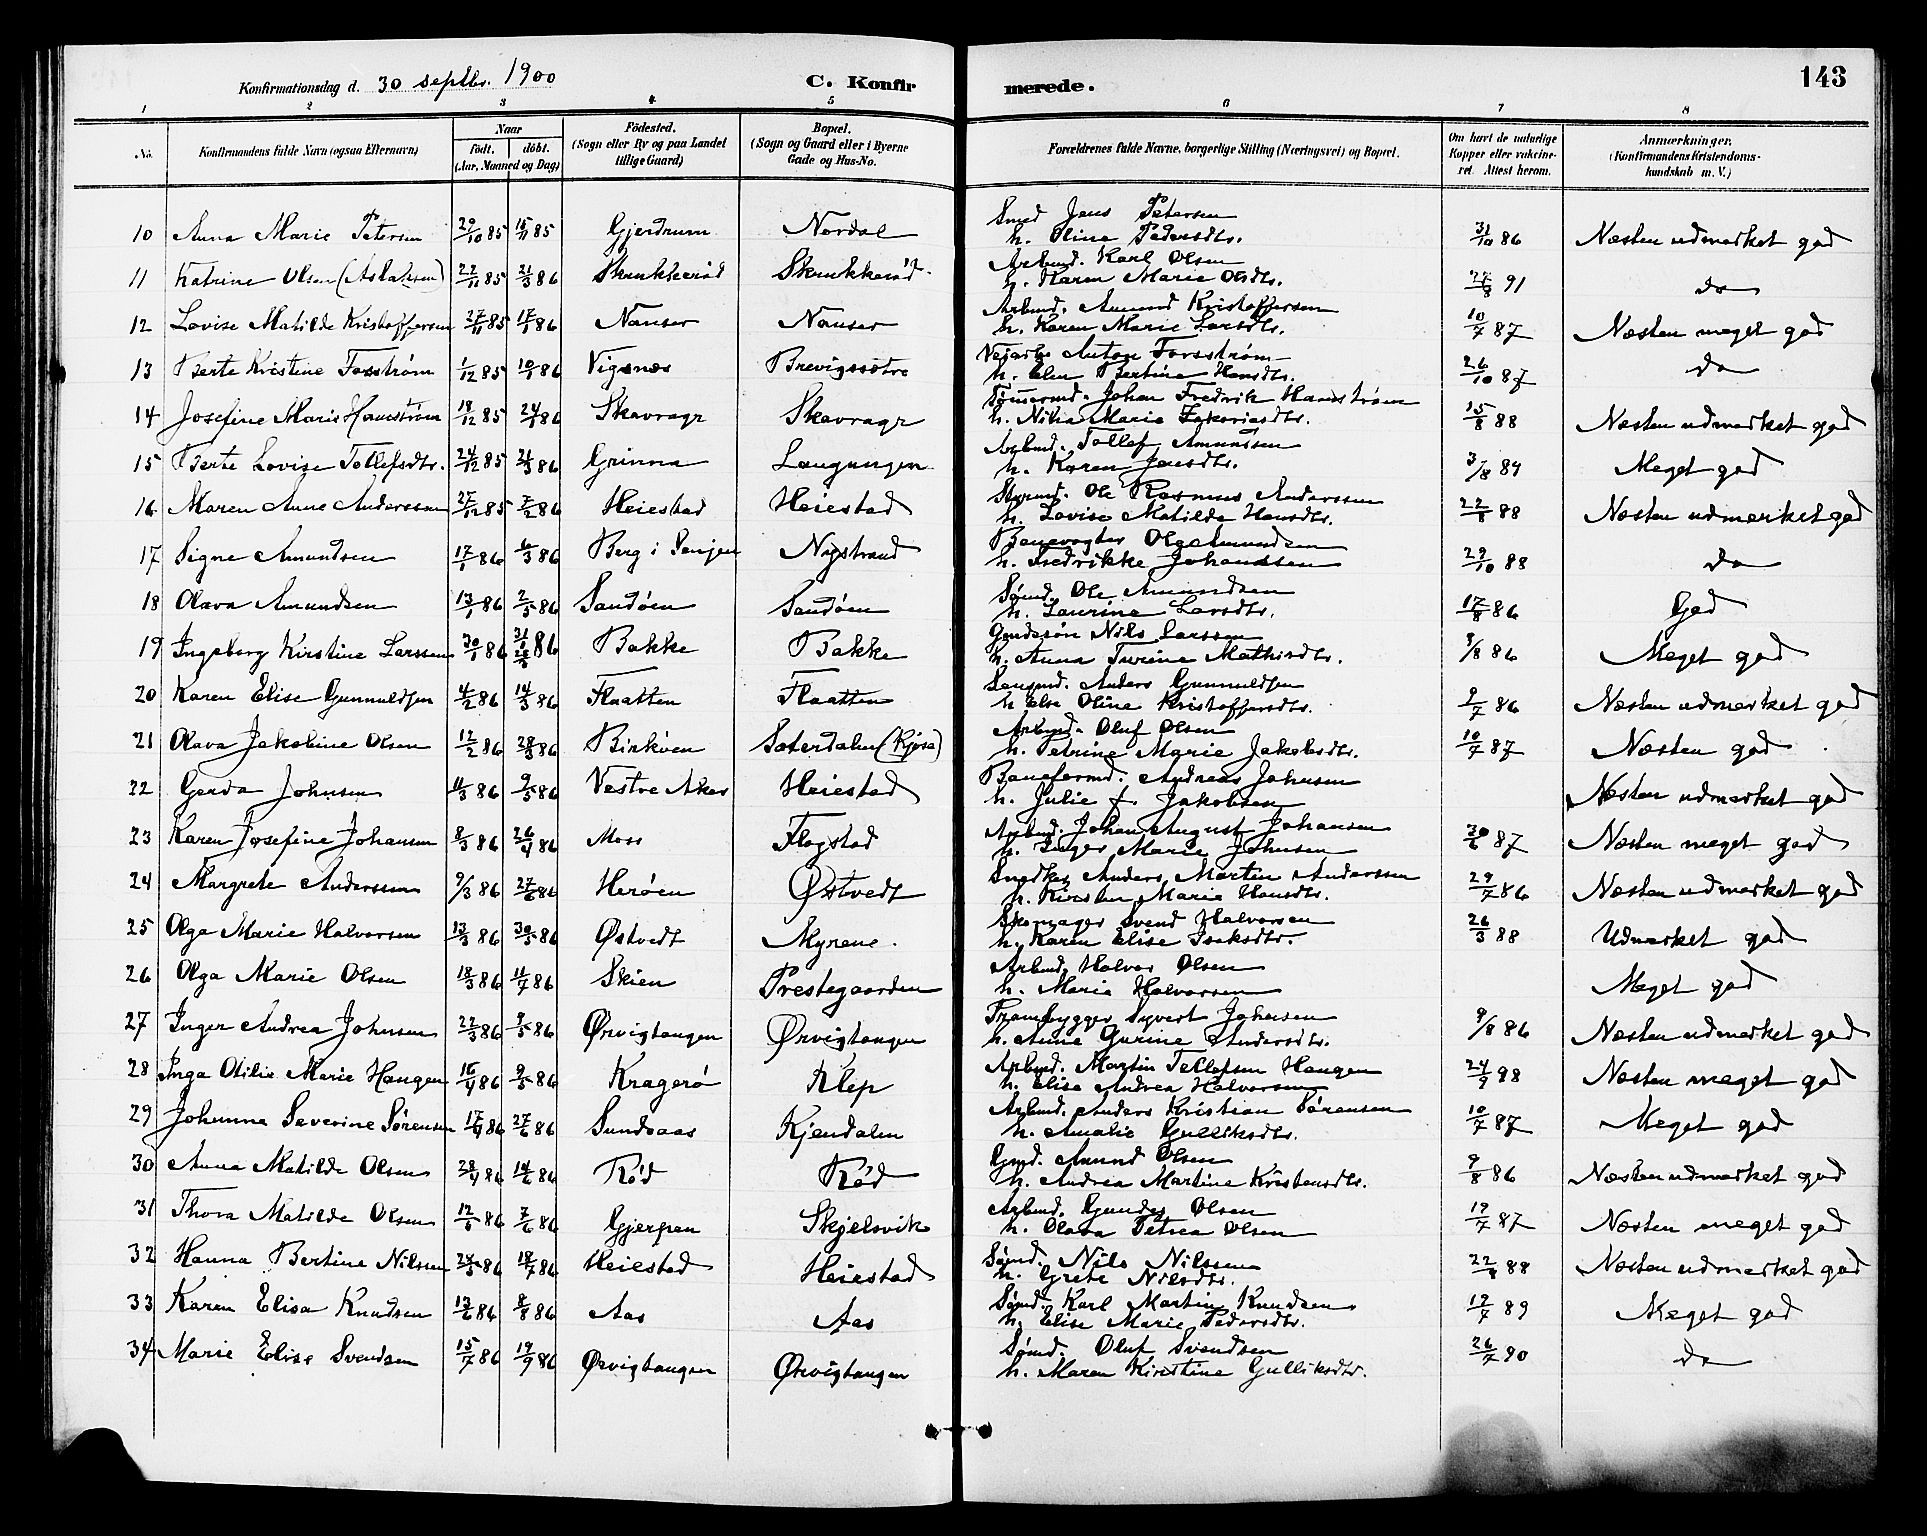 143
Konfirmationsdag d. 30 septbr. 1900 C. Konfirmerede.
1 2 3 4 5 6 7 8
No. Konfirmandens fulde Navn (ogsaa Efternavn) Naar födt. döbt. (Aar, Maaned og Dag) Födested. (Sogn eller By og paa Landet tillige Gaard) Bopæl. (Sogn og Gaard eller i Byerne Gade og Hus-No. Forældrenes fulde Navne, borgerlige Stilling (Næringsvei) og Bopæl. Om havt de naturlige Kopper eller vakcineret. Attest herom. Anmærkninger. (Konfirmandens Kristendomskundskab m. V.)
10 Anna Marie Petersen 29/10 85 15/11 85 Gjerdrum Nordal Smed Jens Petersen h. Oline Pedersdtr. 31/10 86 Næsten udmerket god
11 Katrine Olsen (Aslaksen) 22/11 85 21/3 86 Skrukkerød Skrukkerød Arbmd. Karl Olsen h. Karen Marie Olsdtr. 27/8 91 do
12 Lovise Matilde Kristoffersen 27/11 85 17/1 86 Nanset Nanset Arbmd. Amund Kristoffersen h. Karen Marie Larsdtr. 10/7 87 Næsten meget god
13 Berte Kristine Forsstrøm 1/12 85 10/1 86 Vigsnæs Brevigssötre Anton Forsström h. Elen Bertine Hansdtr. 26/10 87 do
14 Josefine Marie Hamström 18/12 85 24/1 86 Skavrager Skavrager Tømmermd. Johan Fredrik Hamström h. Nilia Marie Zakariasdtr. 15/8 88 Næsten udmerket god
15 Berte Lovise Tollefsdtr. 24/12 85 21/3 86 Grinna Langangen Arbmd. Tollef Amundsen h. Karen Jansdtr. 3/8 89 Meget god
16 Maren Anne Anderssen 27/12 85 7/2 86 Heiestad Heiestad Styrmd. Ole Rasmus Anderssen h. Lovise Matilde Hansdtr. 22/8 88 Næsten udmerket god
17 Signe Amundsen 17/1 86 6/3 86 Berg i Senjen Nystrand Banevogter Ole Amundsen h. Fredrikke Johansen 29/10 88 do
18 Olava Amundsen 13/1 86 2/5 86 Sandöen Sandöen Sømd. Ole Amundsen h. Laurine Larsdtr. 17/8 86 God
19 Ingeborg Kirstine Larssen 30/1 86 31/1 86 Bakke Bakke Nils Larssen h. Anna Turine Mathisdtr. 9/8 86 Meget god
20 Karen Elise Gunnuldsen 4/2 86 14/3 86 Flaatten Flaatten Anders Gunnuldsen h. Else Oline Kristoffersdtr. 9/7 86 Næsten udmerket god
21 Olava Jakobine Olsen 12/2 86 28/3 86 Birköen Sæterdalen (Kjøsa) Arbmd. Oluf Olsen h. Petrine Marie Jakobsdtr. 10/7 87 Næsten god
22 Gerda Johnsen 11/3 86 9/5 86 Vestre Aker Heiestad Baneformd. Andreas Johnsen h. Julie f. Jakobsen Næsten udmerket god
23 Karen Josefine Johansen 8/3 86 26/4 86 Moss Flogstad Arbmd. Johan August Johansen h. Inger Marie Johnsen 30/6 87 Næsten meget god
24 Margrete Anderssen 9/3 86 27/6 86 Herøen Østvedt Snedker Anders Martin Anderssen h. Kirsten Marie Hansdtr. 29/7 86 Næsten udmerket god
25 Olga Marie Halvorsen 13/3 86 30/5 86 Østvedt Myrene. Skomager Svend Halvorsen h. Karen Elise Isaksdtr. 26/3 88 Udmerket god
26 Olga Marie Olsen 18/3 86 11/7 86 Skien Prestegaarden Arbmd. Halvor Olsen h. Maria Halvorsen Meget god
27 Inger Andrea Johnsen 22/3 86 9/5 86 Ørvigtangen Ørvigtangen Syvert Johnsen h. Anne Gurine Andersdtr. 9/8 86 Næsten udmerket god
28 Inga Otilie Marie Haugen 16/4 86 9/5 86 Kragerø Klep Arbmd. Martin Tellefsen Haugen h. Elise Andrea Halvorsen 24/9 98 Næsten meget god
29 Johanne Severine Sørensen 17/4 86 27/6 86 Sundsaas Kjendalen Arbmd. Anders Kristian Sørensen h. Amalie Gulliksdtr. 10/7 87 Meget god
30 Anna Matilde Olsen 28/4 86 14/6 86 Rød Rød Gmd. Amund Olsen h. Andrea Martine Kristensdtr. 9/8 86 Næsten udmerket god
31 Thora Matilde Olsen 12/5 86 7/6 86 Gjerpen Skjelsvik Arbmd. Gunder Olsen h. Olava Petrea Olsen 19/7 87 Næsten meget god
32 Hanna Bertine Nilssen 24/5 86 18/7 86 Heiestad Heiestad Sømd. Nils Nilssen h. Grete Nilsdtr. 22/8 88 Næsten udmerket god
33 Karen Elisa Knudsen 13/6 86 8/8 86 Aas Aas Sømd. Karl Martin Knudsen h. Elise Marie Pedersdtr. 19/7 89 Meget god
34 Marie Elise Svendsen 15/7 86 19/9 86 Ørvigtangen Ørvigtangen Sømd. Oluf Svendsen h. Maren Kirstine Gulliksdtr. 26/7 90 do